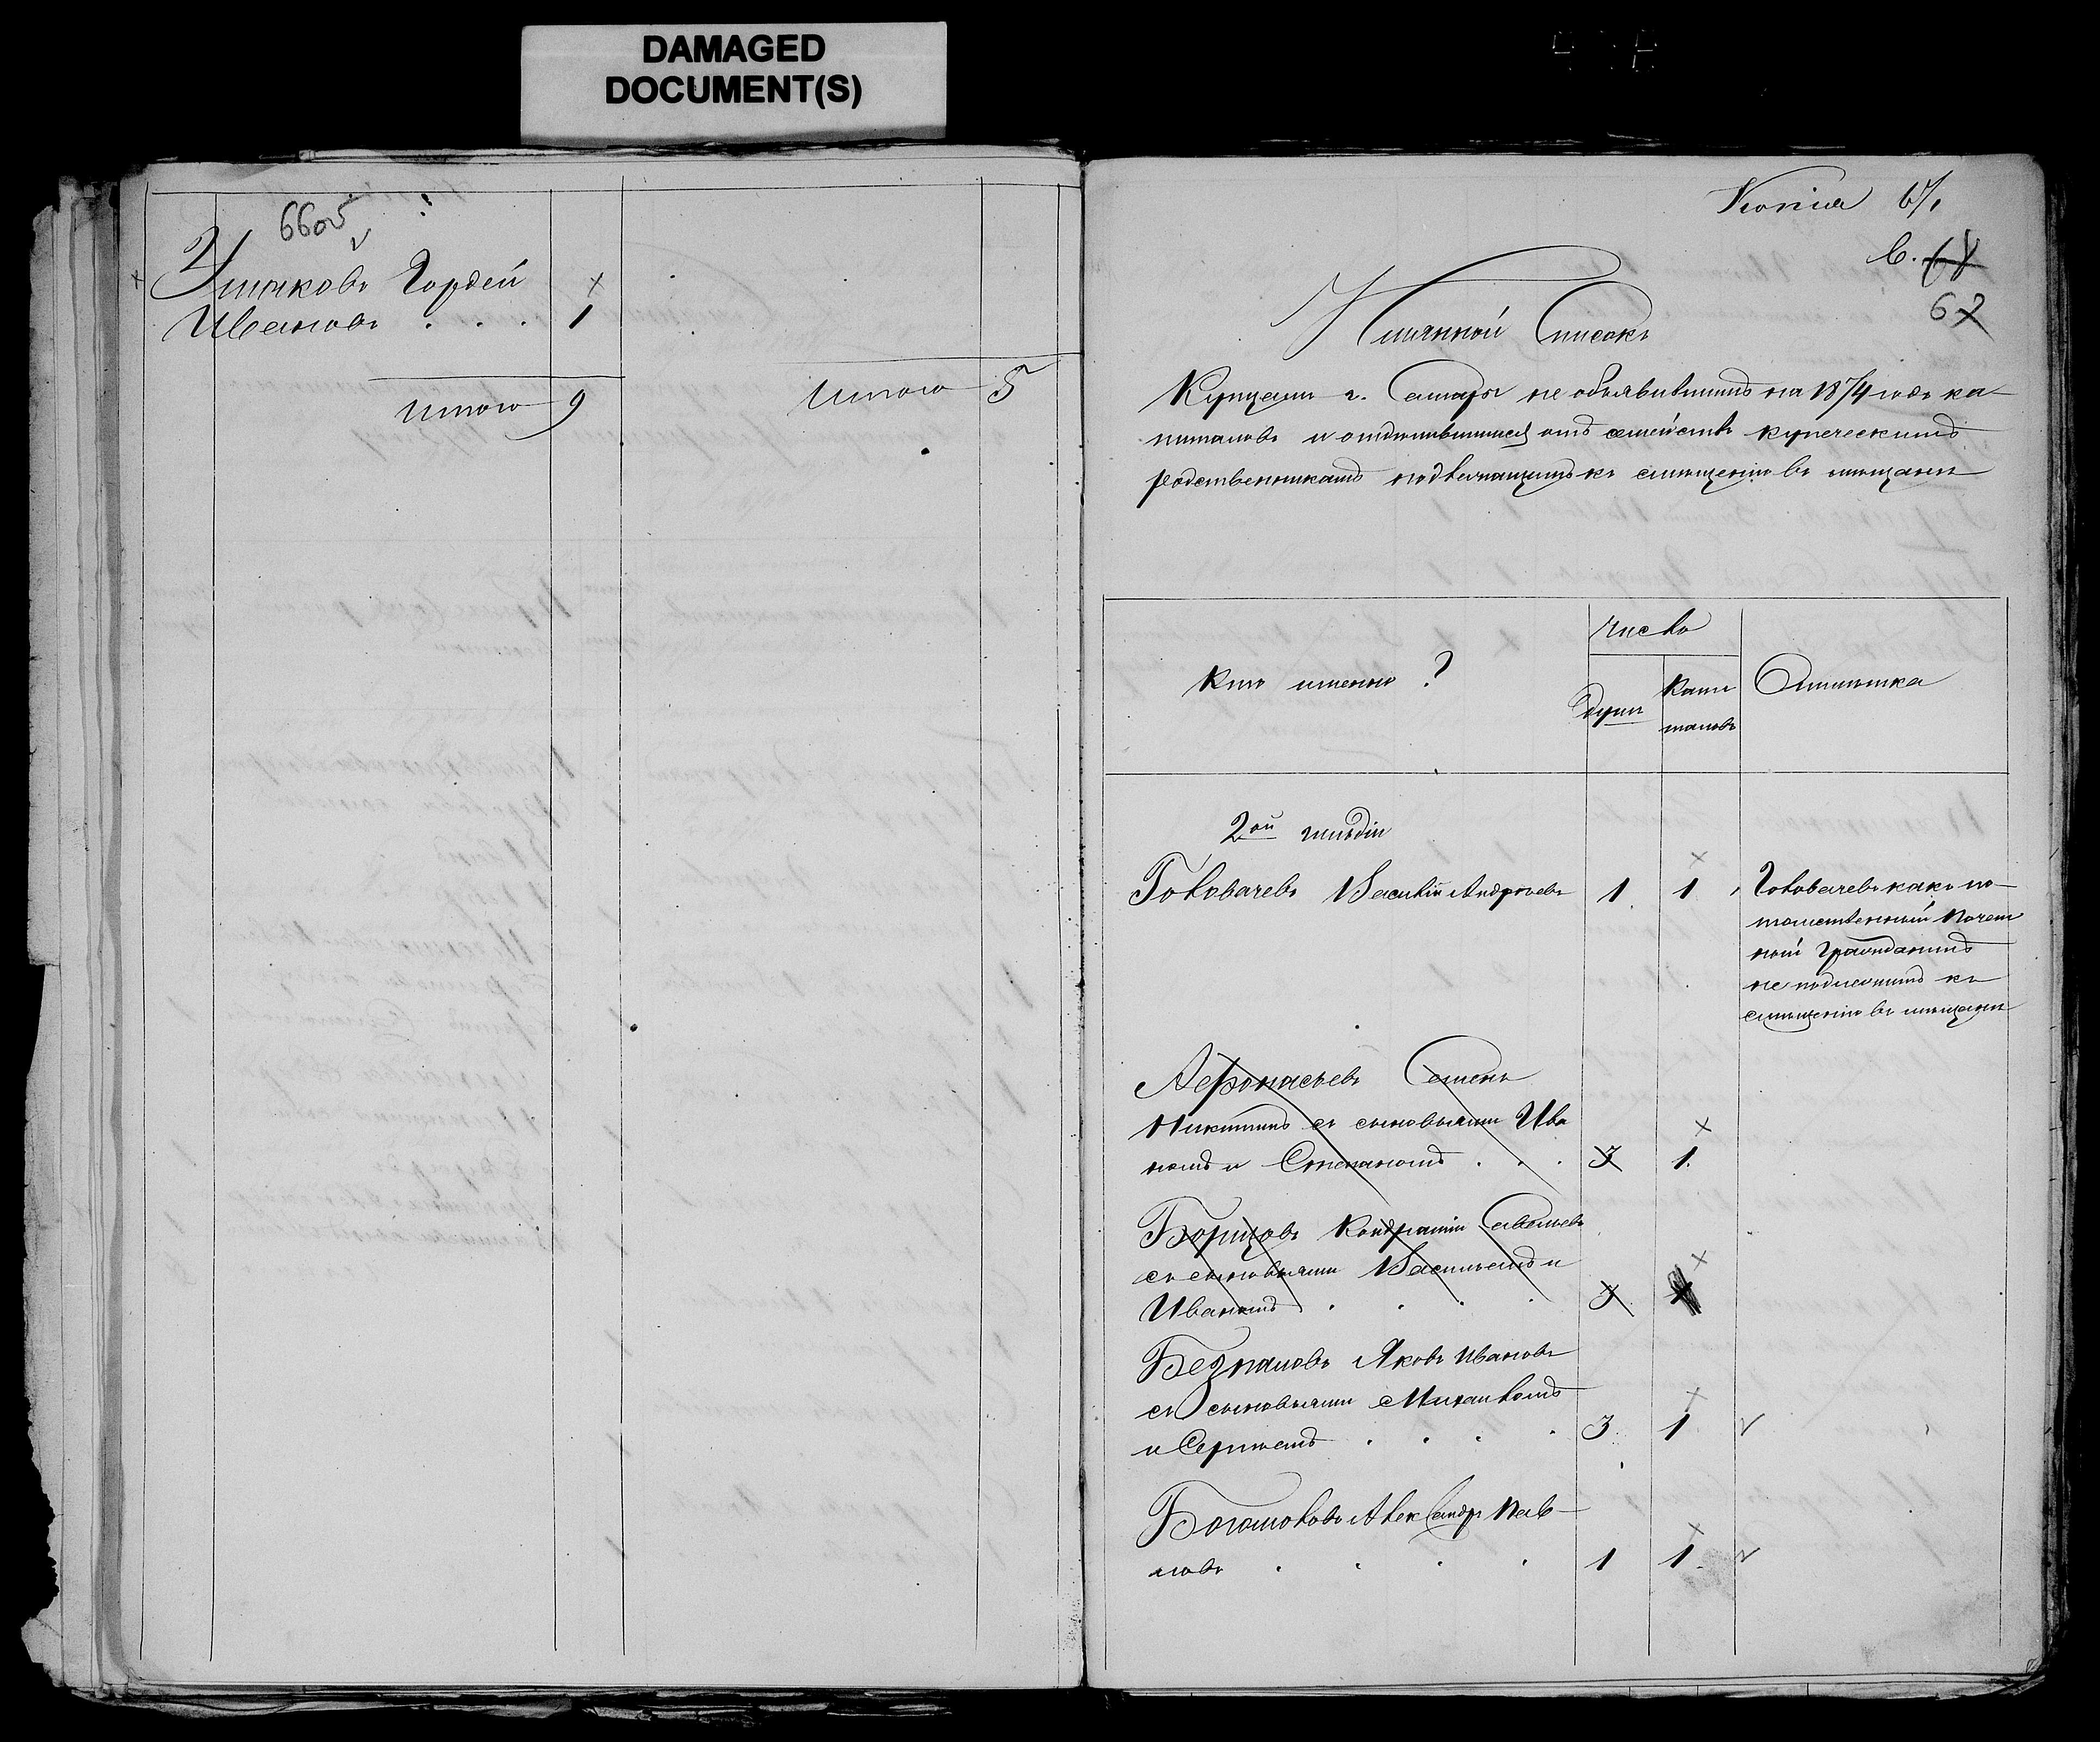 DAMAGED
DOCUMENT(S)
66об
Ушаковъ Гордей
Ивановъ . . . 1
Итого 9
Итого 5
Копія
В.
67
Имянной Списокъ
Купцамъ г. Самары не объявившимъ на 1874 годъ ка-
питаловъ и отдѣлившимся отъ семействъ купеческимъ
родственникамъ подлежащимъ къ смѣщенію въ мѣщане
Число
Кто именно?
душъ
Капи
таловъ
Отмѣтка
2ой гильдіи
Головачевъ Василій Андреевъ 1 1
Головачевъ какъ по-
томственный почет
ный гражданинъ
не подлежитъ къ
смѣщенію въ мѣщане
Афонасьевъ Семенъ
Никитинъ съ сыновьями Ива
номъ и Степаномъ . . . 3 1.
Борщовъ Кондратій Савельевъ
съ сыновьями Васильемъ и
Иваномъ . . . . 3
Безпаловъ Яковъ Ивановъ
съ сыновьями Михаиломъ
и Сергѣемъ . . . . 3 1
Богомоловъ Александръ Пав-
ловъ . . . . 1 1